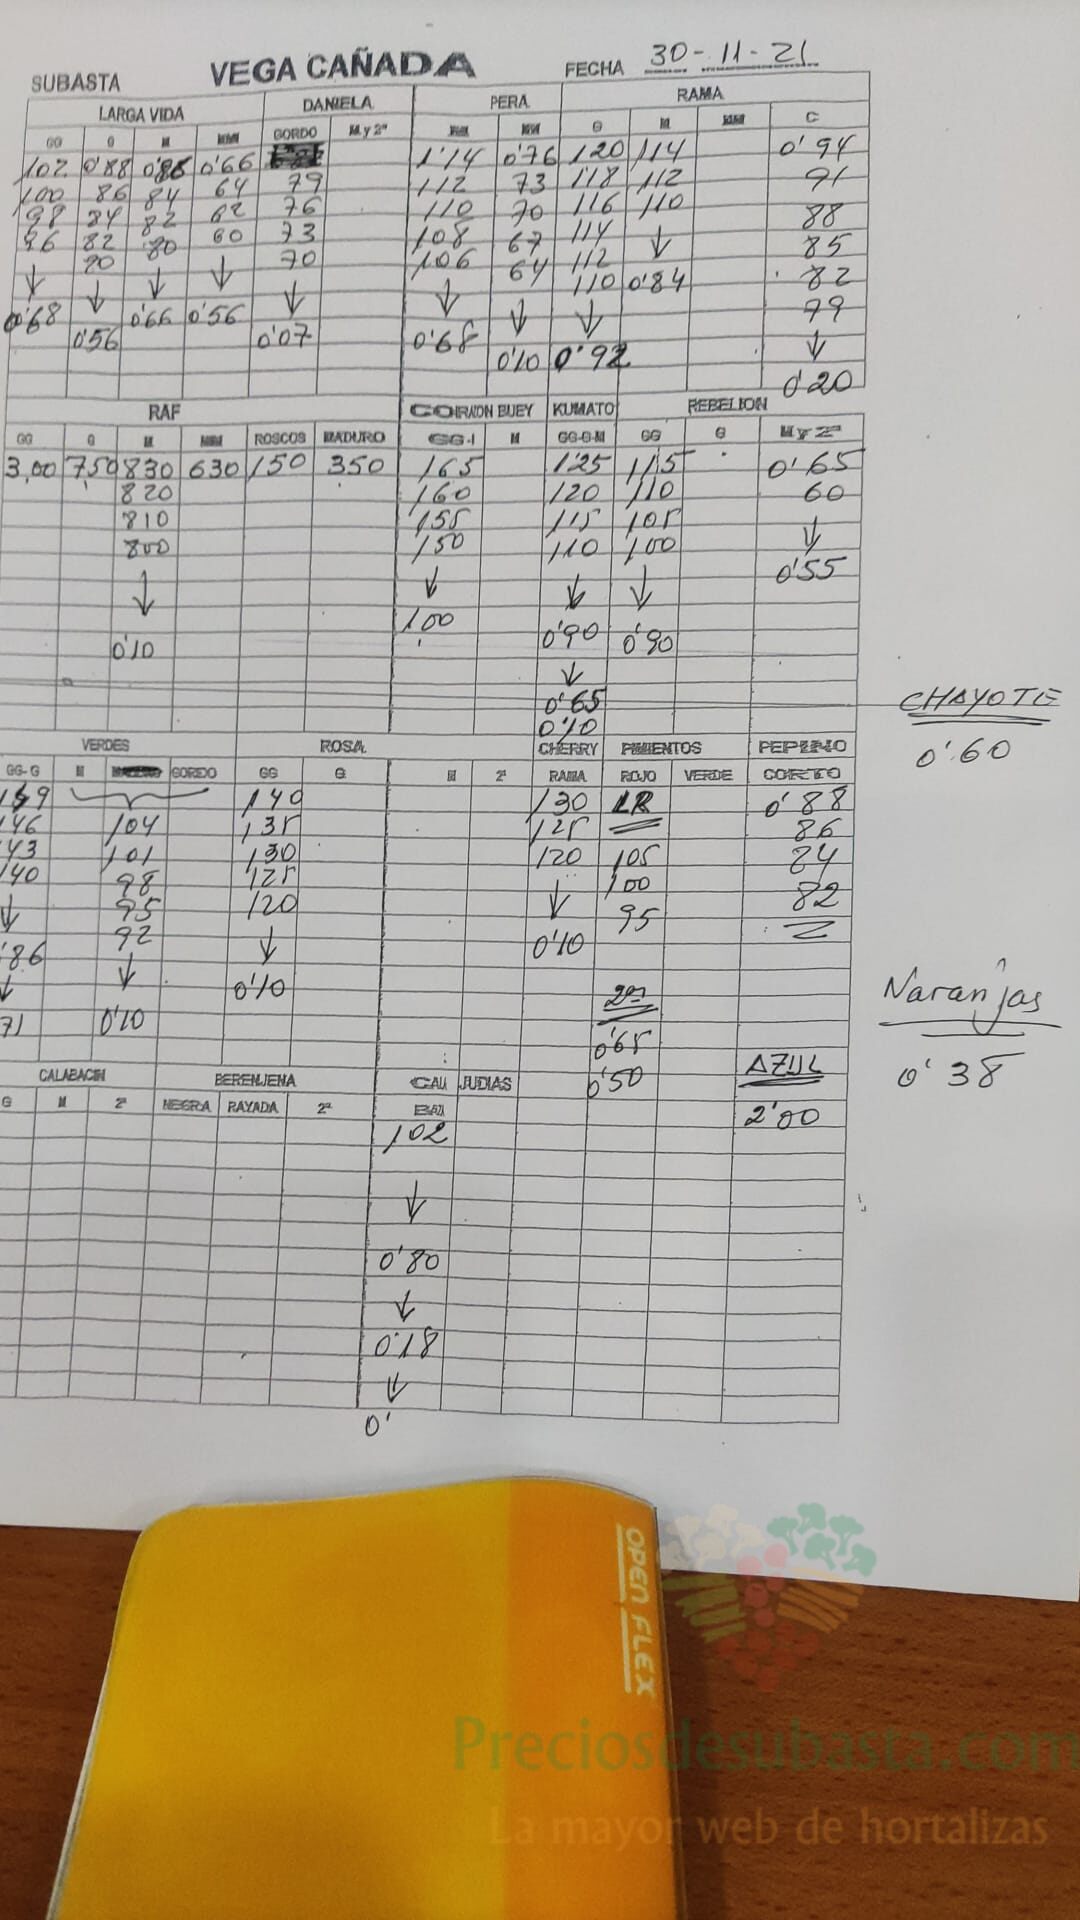 SUBASTA VEGA CAÑADA FECHA 30-11-21
LARGA VIDA DANIELA PERA RAMA
GG G M MM GORDO M y 2ª M MM G M MM C
102 0'88 0'86 0'66 1'14 0'76 120 114 0'94
100 86 84 64 79 112 73 118 112 91
98 84 82 62 76 110 70 116 110 88
96 82 80 60 73 108 67 114 ↓ 85
↓ 80 ↓ ↓ 70 106 64 112 82
0'68 ↓ 0'66 0'56 ↓ ↓ ↓ 110 0'84 79
0'56 0'07 0'68 0'10 ↓ ↓
0'92 0'20
RAF CORAZON BUEY KUMATO REBELION
GG G M MM ROSCOS MADURO GG-1 M GG-G-M GG G M y 2ª
3,00 750 830 630 150 350 165 125 115 0'65
820 160 120 110 60
810 155 115 105 ↓
800 150 110 100 0'55
↓ ↓ ↓ ↓
0'10 100 0'90 0'90
↓
0'65
0'10
CHAYOTE
0'60
VERDES ROSA CHERRY PIMIENTOS PEPINO
GG-G M GORDO GG G M 2ª RAMA ROJO VERDE CORTO
149 140 130 LR 0'88
146 104 135 125 86
143 101 130 120 105 84
140 98 125 ↓ 100 82
↓ 95 120 0'10 95
'86 92 ↓
↓ ↓ 0'10 2ª
71 0'10 0'65
0'50
Naranjas
0'38
AZUL
2'00
CALABACIN BERENJENA CAL JUDIAS
G M 2ª NEGRA RAYADA 2ª BAL
102
↓
0'80
↓
0'18
↓
0'
OPEN FLEX
Preciosdesubasta.com
La mayor web de hortalizas